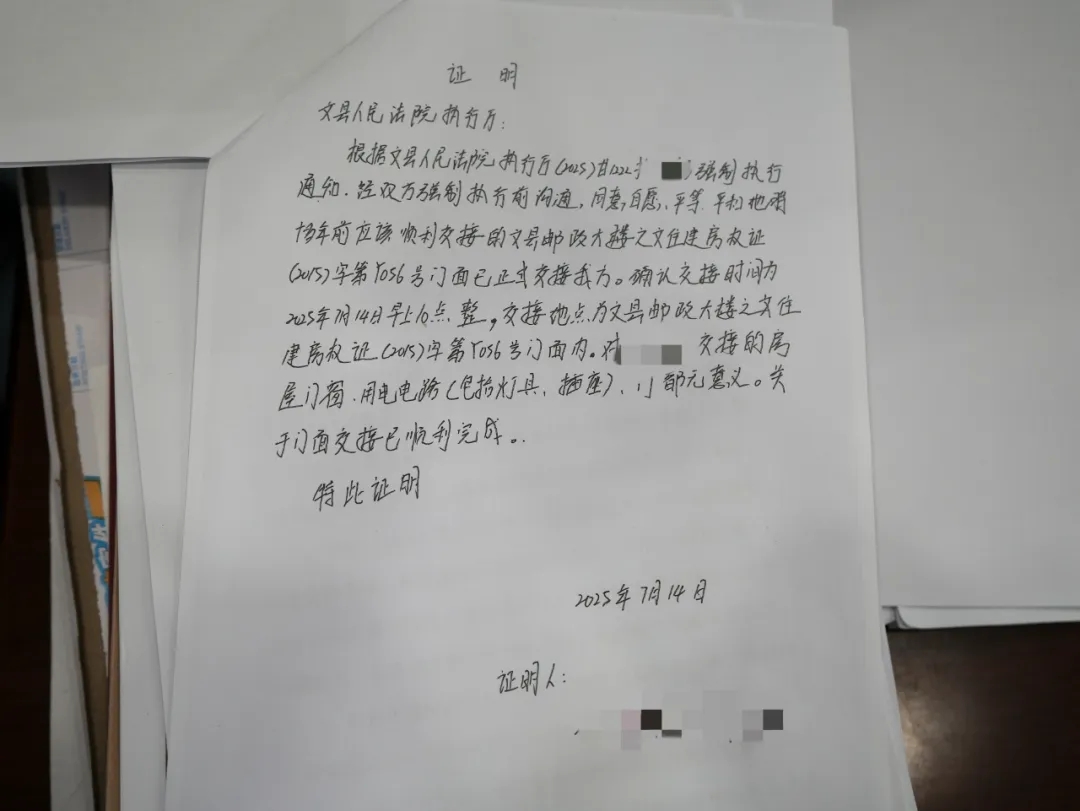 证 明
文县人民法院执行厅:
根据文县人民法院执行厅(2025)甘1222 强制执行
通知.经双方强制执行前沟通,同意,自愿、平等、平和地将
年前应该顺利交接的文县邮政大楼之文住建房权证
(2015)字第Y056号门面已正式交接我方。确认交接时间为
2025年7月14日早上10点整,交接地点为文县邮政大楼之文住
建房权证(2015)字第Y056号门面内。对 交接的房
屋门窗.用电电路(包括灯具、插座)、 都无意义。关
于门面交接已顺利完成。
特此证明
2025年7月14日
证明人: